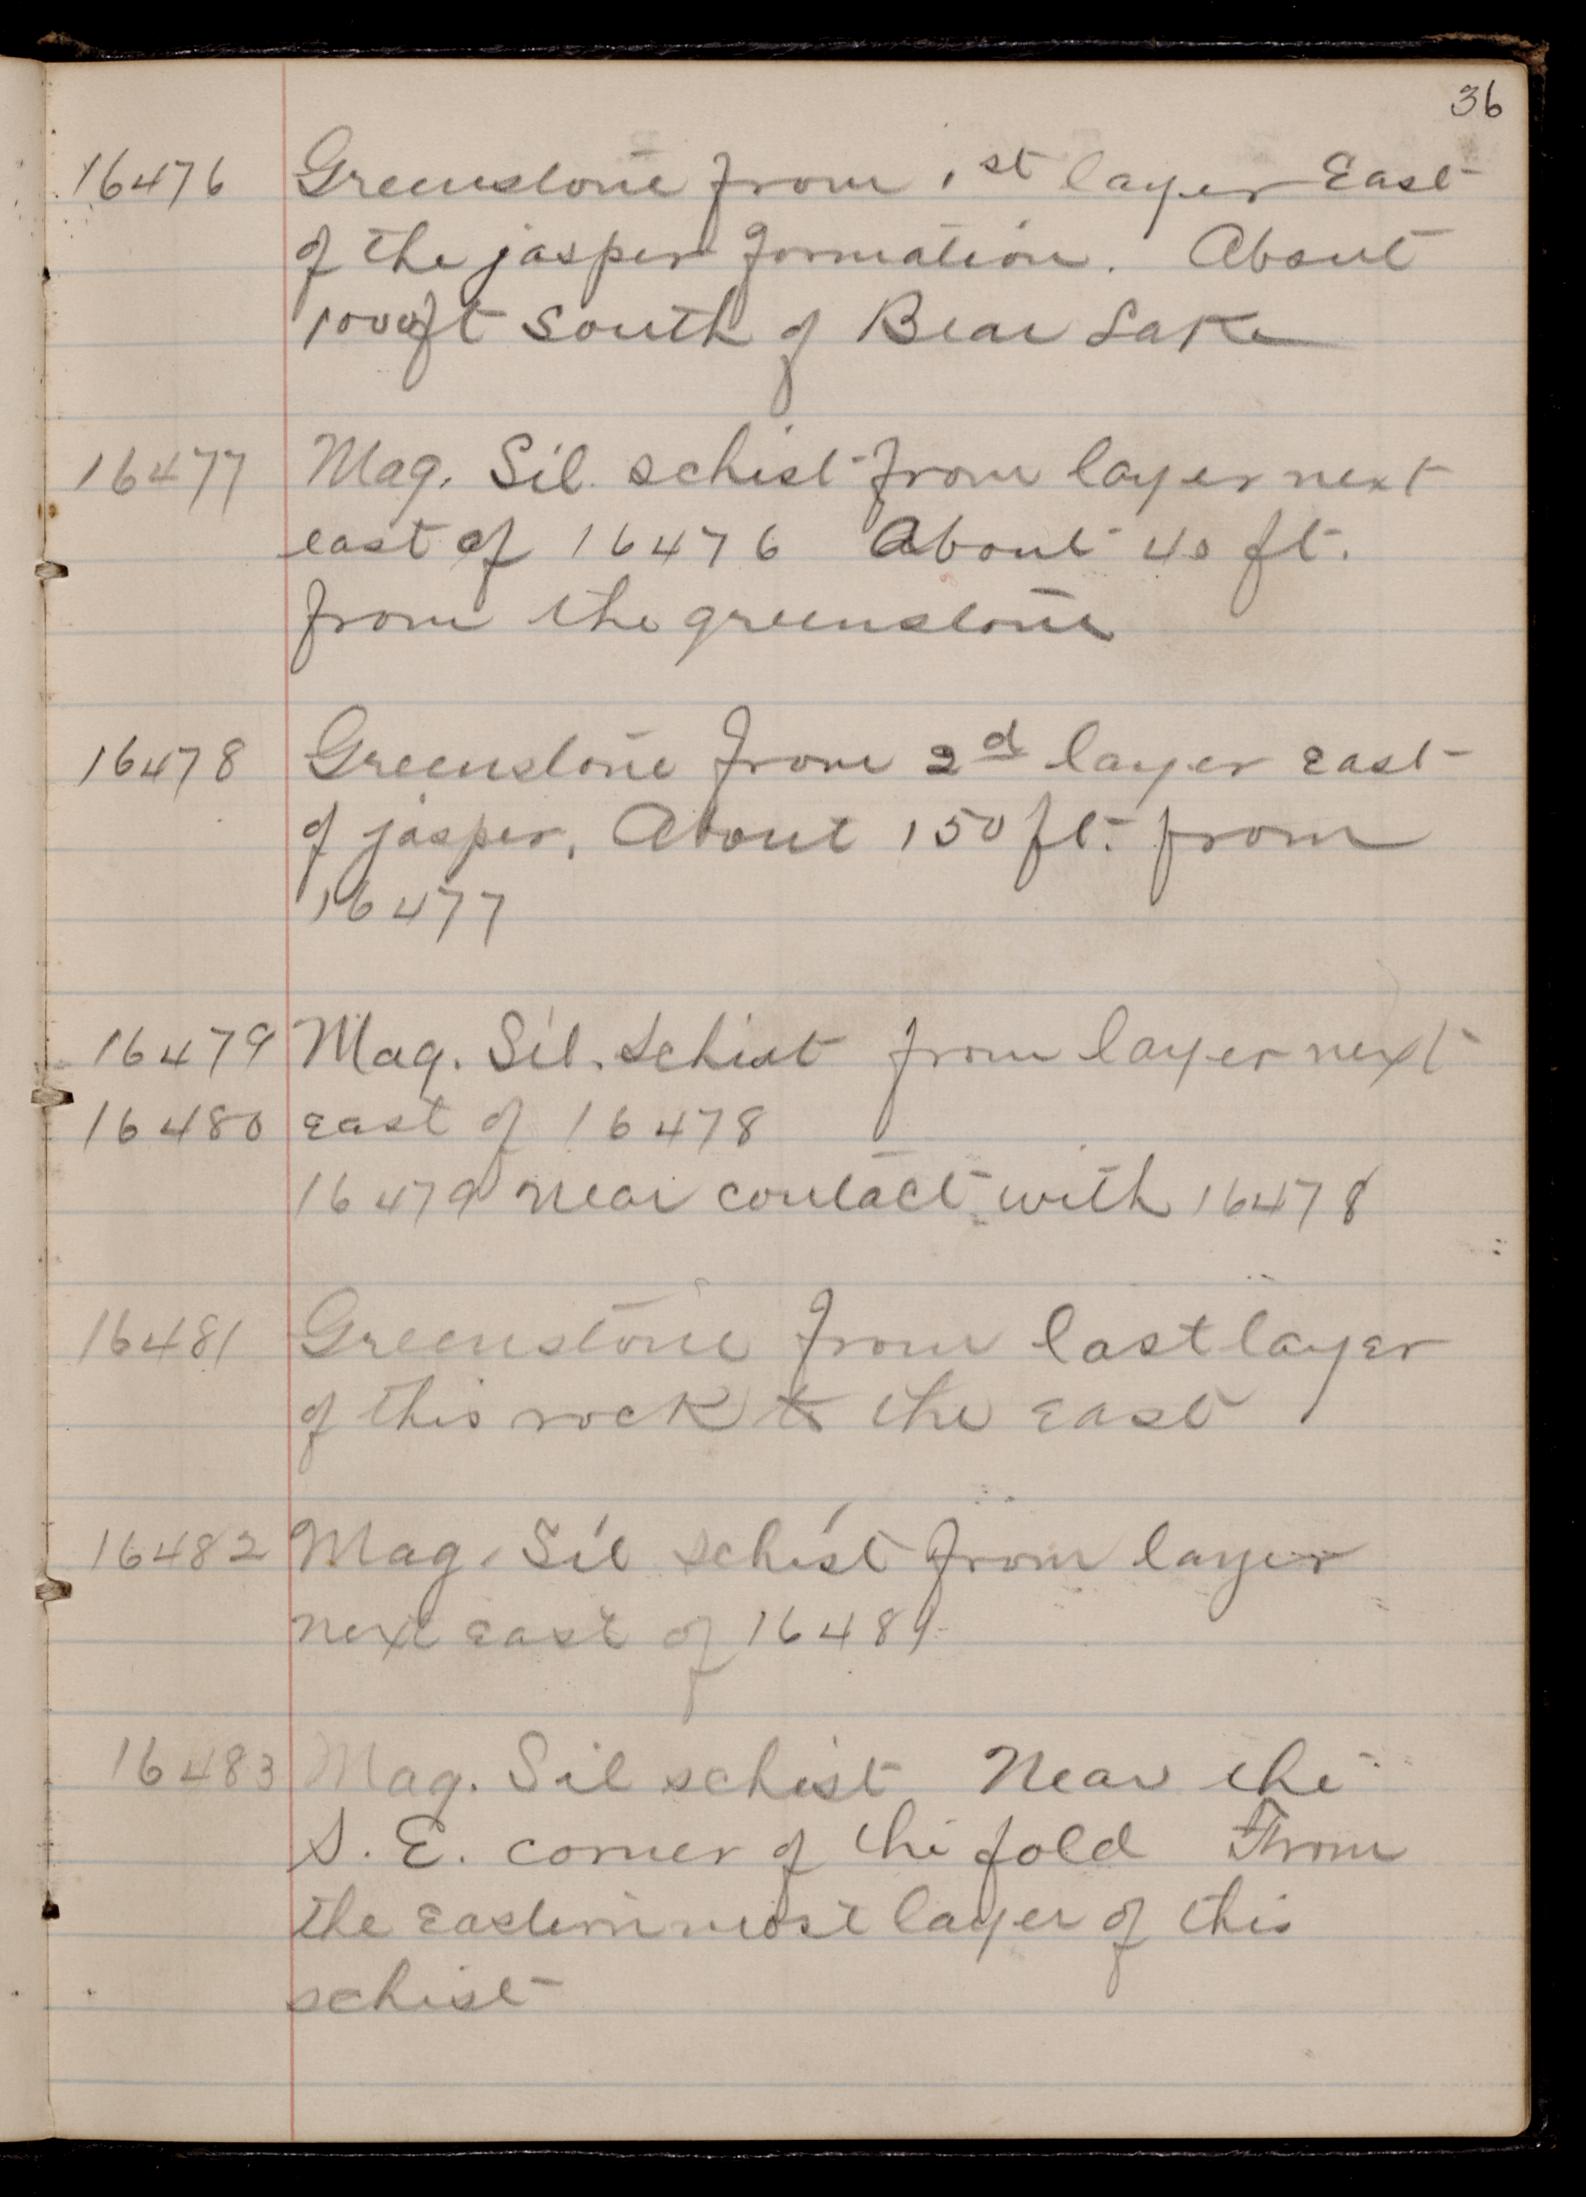 36
16476 Greenstone from 1st layer East
of the jasper formation. About
1000ft South of Bear Lake
16477 Mag. Sil. schist from layer next
east of 16476 About 40 ft.
from the greenstone
16478 Greenstone from 2d layer east
of jasper. About 150 ft. from
16477
16479 Mag. Sil. Schist from layer next
16480 east of 16478
16479 near contact with 16478
16481 Greenstone from last layer
of this rock to the east
16482 Mag. Sil schist from layer
next east of 16481
16483 Mag. Sil schist Near the
S. E. corner of the fold From
the easternmost layer of this
schist